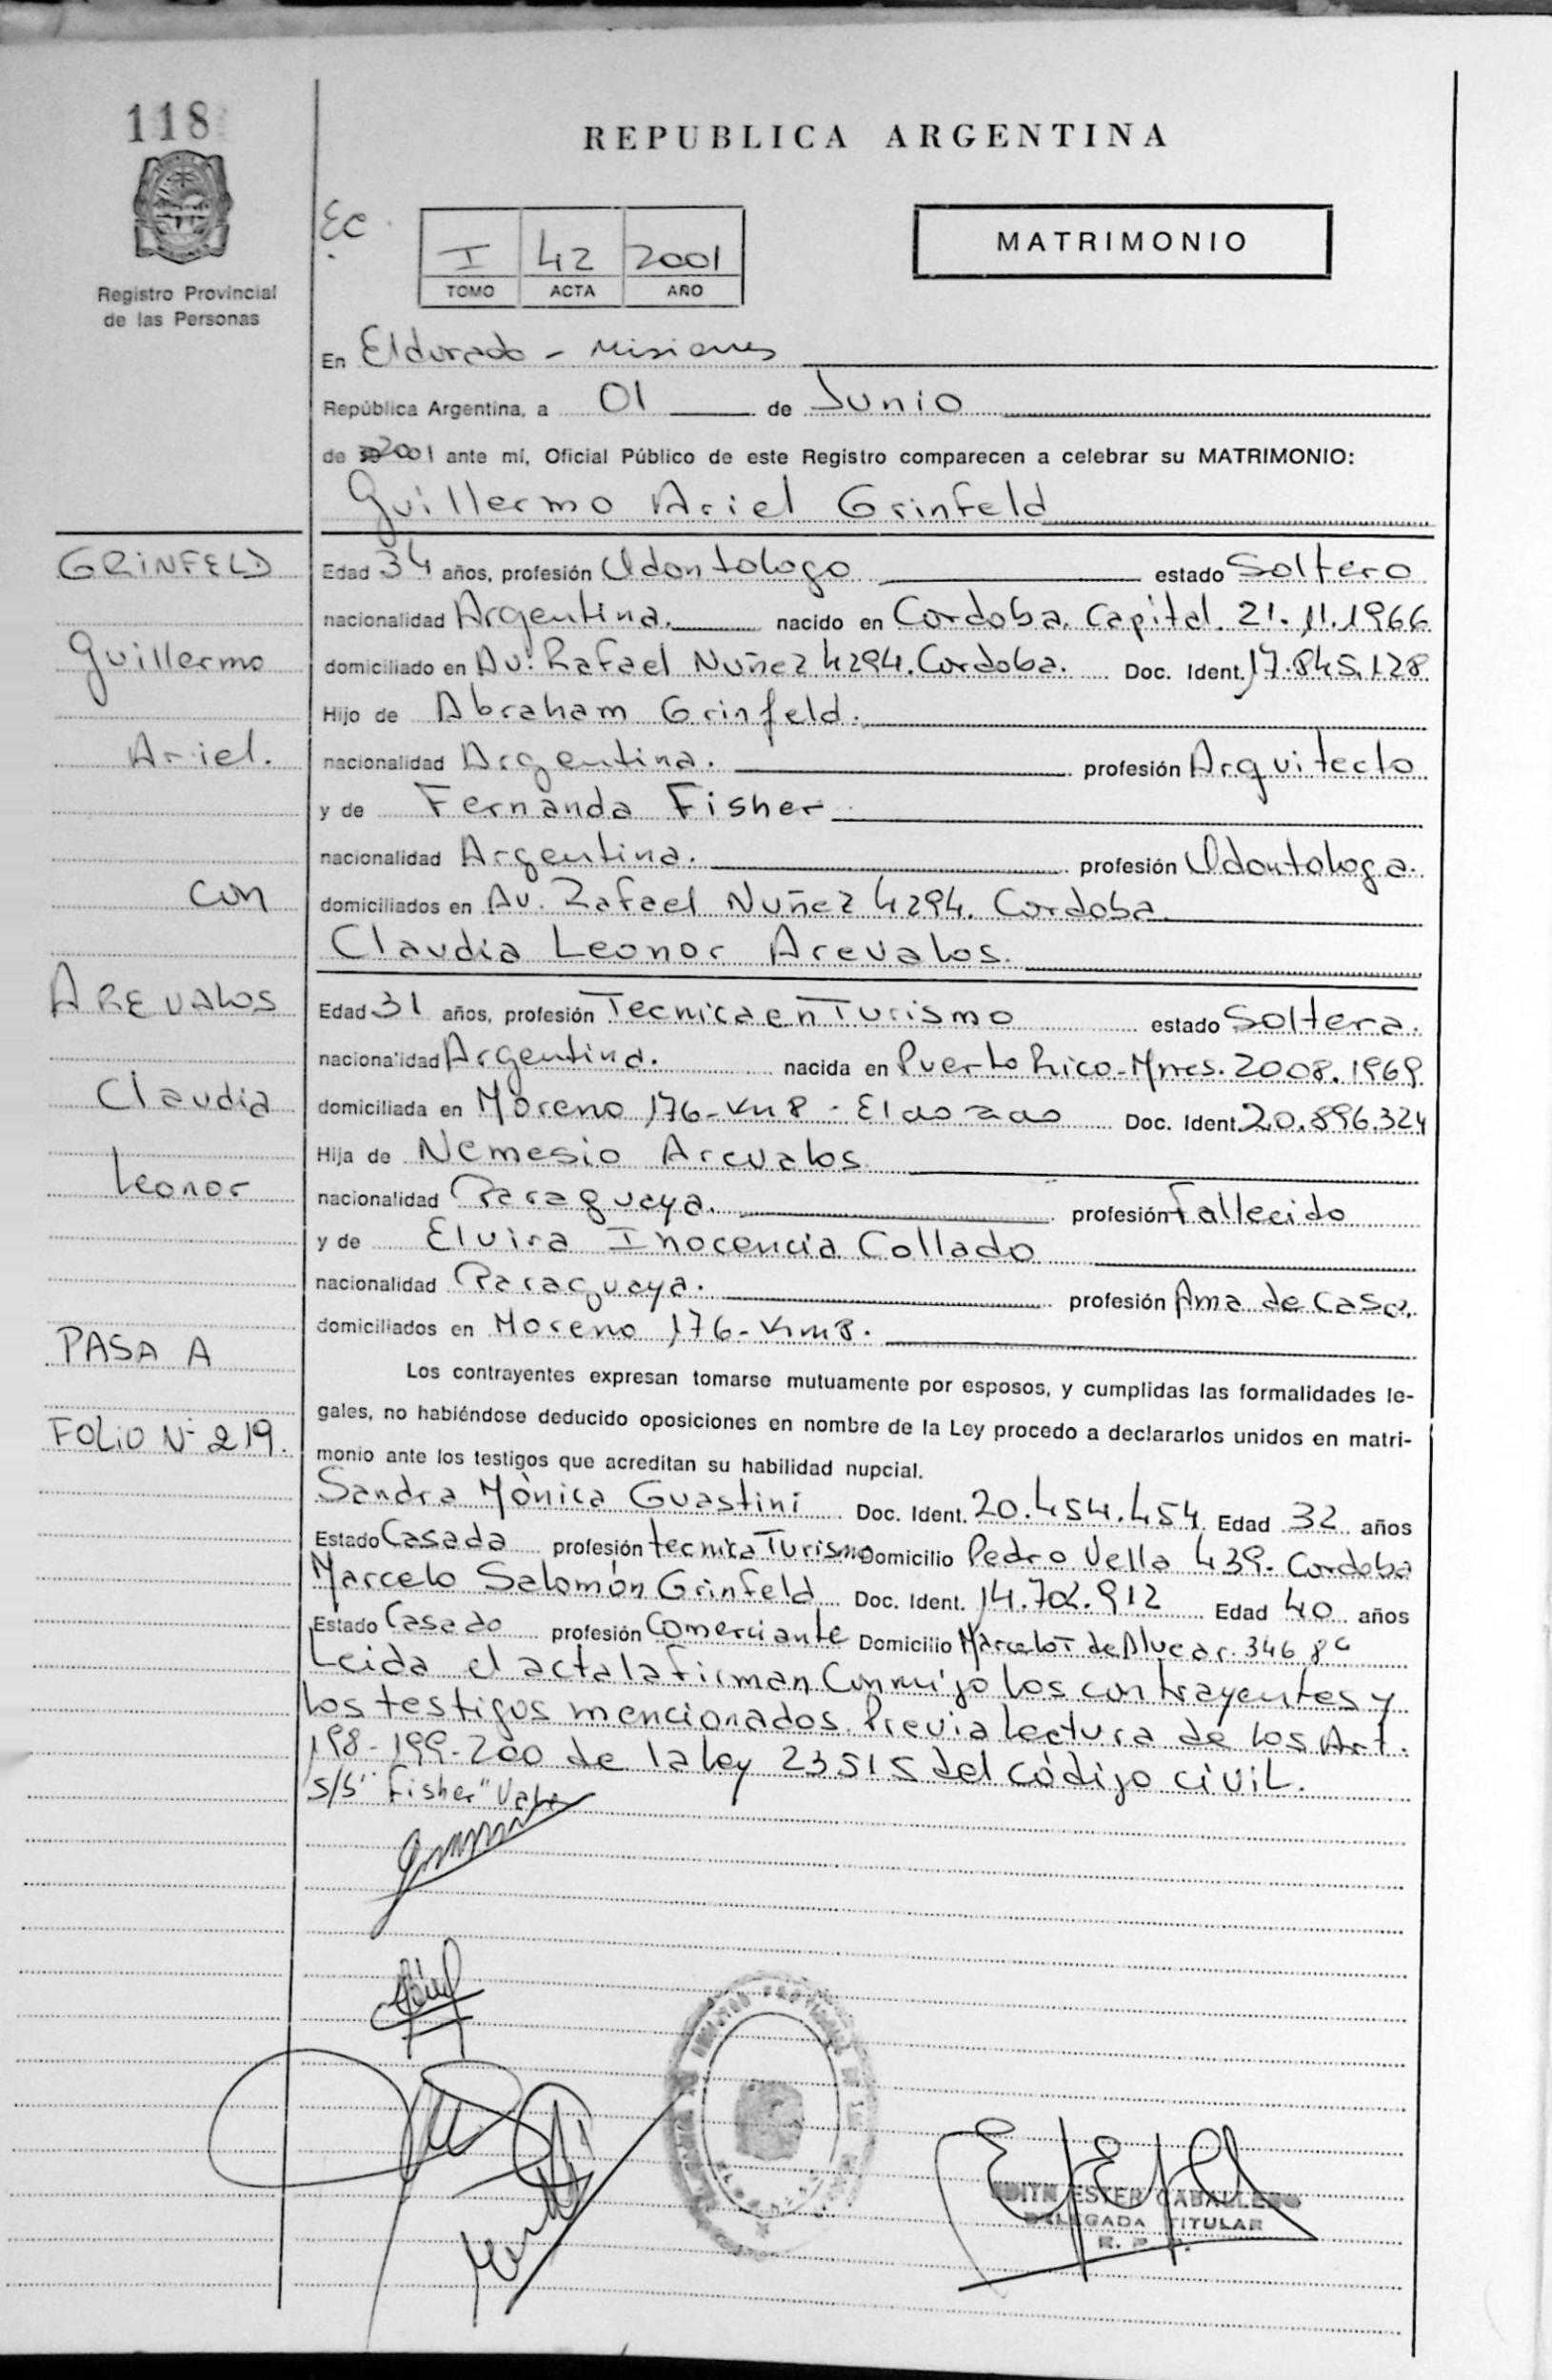 118
REPUBLICA ARGENTINA
EC
I 42 2001
TOMO ACTA AÑO
MATRIMONIO
Registro Provincial
de las Personas
En Eldorado - Misiones
República Argentina, a 01 de Junio
de 2001 ante mí, Oficial Público de este Registro comparecen a celebrar su MATRIMONIO:
Guillermo Ariel Grinfeld
GRINFELD
Guillermo
Ariel.
con
AREVALOS
Claudia
Leonor
PASA A
FOLIO Nº 219.
Edad 34 años, profesión Odontologo estado Soltero
nacionalidad Argentina. nacido en Cordoba. Capital. 21.11.1966
domiciliado en Av. Rafael Nuñez 4294. Cordoba. Doc. Ident. 17.845.128
Hijo de Abraham Grinfeld.
nacionalidad Argentina. profesión Arquitecto
y de Fernanda Fisher
nacionalidad Argentina. profesión Odontologa.
domiciliados en Av. Rafael Nuñez 4294. Cordoba
Claudia Leonor Arevalos.
Edad 31 años, profesión Tecnica en Turismo estado Soltera.
nacionalidad Argentina. nacida en Puerto Rico-Mnes. 20.08.1969
domiciliada en Moreno 176-Km 8 - Eldorado Doc. Ident. 20.896.324
Hija de Nemesio Arevalos
nacionalidad Paraguaya. profesión Fallecido
y de Elvira Inocencia Collado
nacionalidad Paraguaya. profesión Ama de casa.
domiciliados en Moreno 176-Km 8.
Los contrayentes expresan tomarse mutuamente por esposos, y cumplidas las formalidades le-
gales, no habiéndose deducido oposiciones en nombre de la Ley procedo a declararlos unidos en matri-
monio ante los testigos que acreditan su habilidad nupcial.
Sandra Mónica Guastini Doc. Ident. 20.454.454 Edad 32 años
Estado Casada profesión tecnica Turismo Domicilio Pedro Vella 439. Cordoba
Marcelo Salomón Grinfeld Doc. Ident. Edad 40 años
Estado Casado profesión Comerciante Domicilio Marcelo T de Alvear 346 8º
Leida el acta la firman Conmigo los contrayentes y
los testigos mencionados. Previa lectura de los Art.
198-199-200 de la ley 23515 del código civil.
S/S "Fisher" Vale
EDITH ESTER CABALLERO
DELEGADA TITULAR
R. P. P.